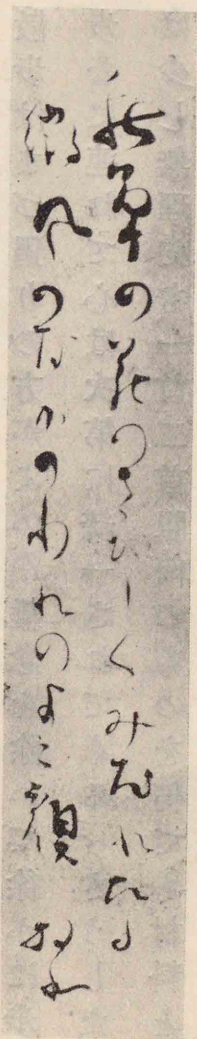 秋草の花のさびしくみだれたる
微風のなかのわれのよこ顔 牧水